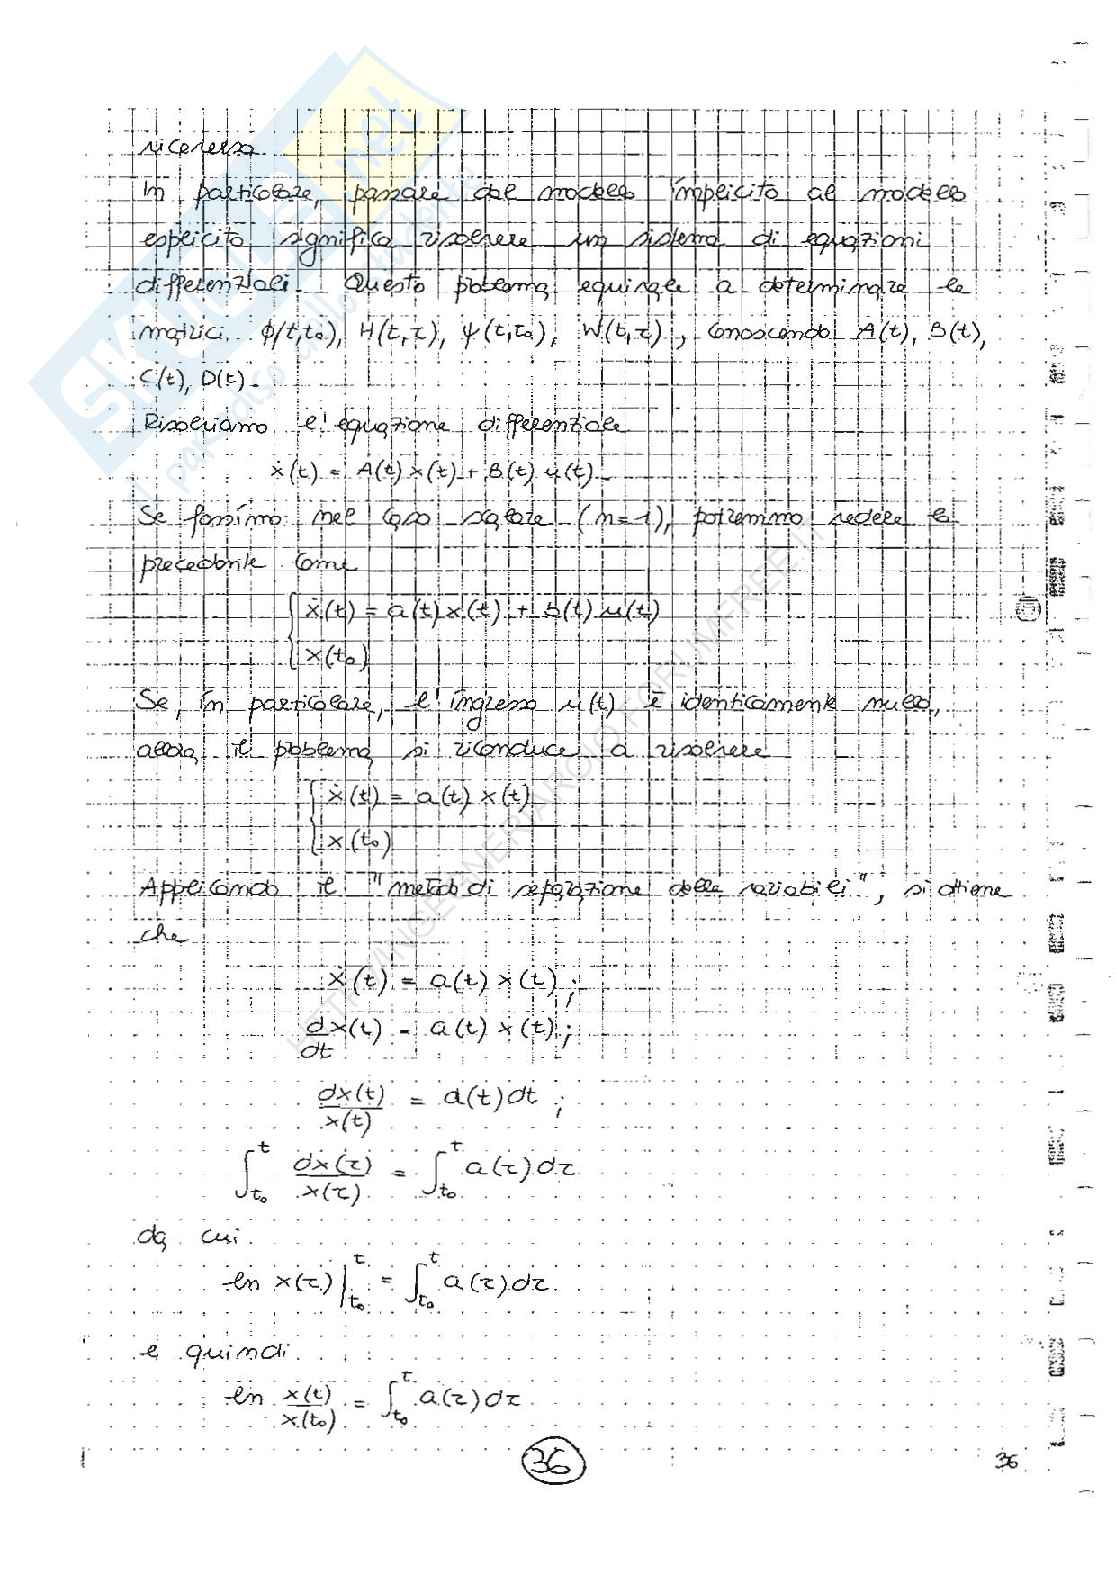 viceversa.
In particolare, passare dal modello implicito al modello
esplicito significa risolvere un sistema di equazioni
differenziali. Questo problema equivale a determinare le
matrici φ(t,t₀), H(t,τ), ψ(t,t₀), W(t,τ), conoscendo A(t), B(t),
C(t), D(t).
Risolviamo l'equazione differenziale
ẋ(t) = A(t)x(t) + B(t)u(t)
Se fossimo nel caso scalare (n=1), potremmo vedere la
precedente come
{ẋ(t) = a(t)x(t) + b(t)u(t)
x(t₀)
Se, in particolare, l'ingresso u(t) è identicamente nullo,
allora il problema si riconduce a risolvere
{ẋ(t) = a(t)x(t)
x(t₀)
Applicando il "metodo di separazione delle variabili", si ottiene
che
ẋ(t) = a(t)x(t);
d/dt x(t) = a(t)x(t);
dx(t)/x(t) = a(t)dt;
∫_{t₀}^{t} dx(τ)/x(τ) = ∫_{t₀}^{t} a(τ)dτ
da cui
ln x(τ)|_{t₀}^{t} = ∫_{t₀}^{t} a(τ)dτ
e quindi
ln x(t)/x(t₀) = ∫_{t₀}^{t} a(τ)dτ
36
36